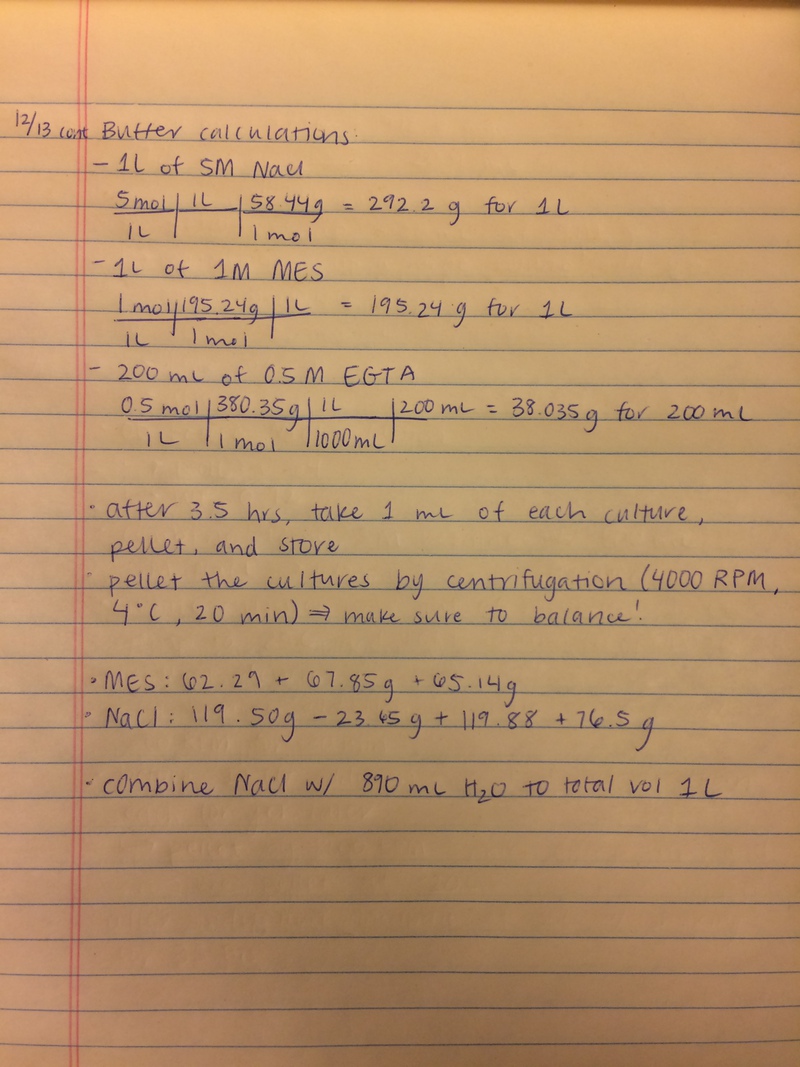 12/13 cont Buffer calculations:
- 1L of 5M NaCl
5 mol | 1L | 58.44g = 292.2 g for 1L
1L | | 1 mol
- 1L of 1M MES
1 mol | 195.24g | 1L = 195.24 g for 1L
1L | 1 mol
- 200 mL of 0.5 M EGTA
0.5 mol | 380.35g | 1L | 200 mL = 38.035g for 200 mL
1L | 1 mol | 1000mL
• after 3.5 hrs, take 1 mL of each culture,
pellet, and store
• pellet the cultures by centrifugation (4000 RPM,
4°C, 20 min) ⇒ make sure to balance!
• MES: 62.29 + 67.85g + 65.14g
• NaCl: 119.50g - 23.45g + 119.88 + 76.5 g
• combine NaCl w/ 890 mL H₂O to total vol 1L